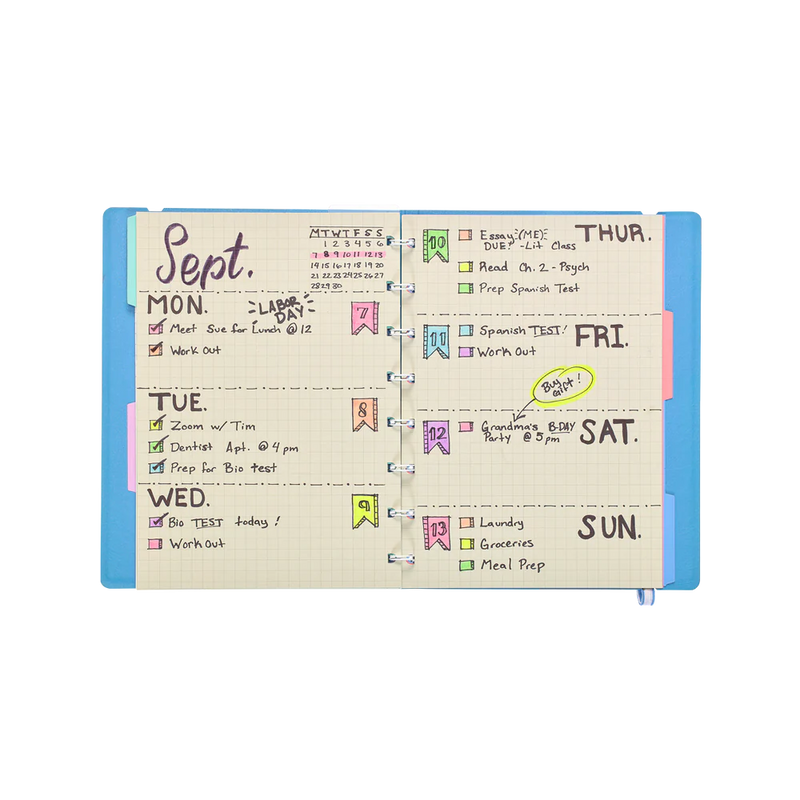 Sept.
M T W T F S S
1 2 3 4 5 6
7 8 9 10 11 12 13
14 15 16 17 18 19 20
21 22 23 24 25 26 27
28 29 30
MON.
LABOR
DAY
7
Meet Sue for Lunch @ 12
Work Out
TUE.
8
Zoom w/ Tim
Dentist Apt. @ 4 pm
Prep for Bio test
WED.
9
Bio TEST today!
Work Out
THUR.
10
Essay (ME)
DUE! - Lit Class
Read Ch. 2 - Psych
Prep Spanish Test
FRI.
11
Spanish TEST!
Work Out
Buy
Gift!
SAT.
12
Grandma's B-DAY
Party @ 5 pm
SUN.
13
Laundry
Groceries
Meal Prep